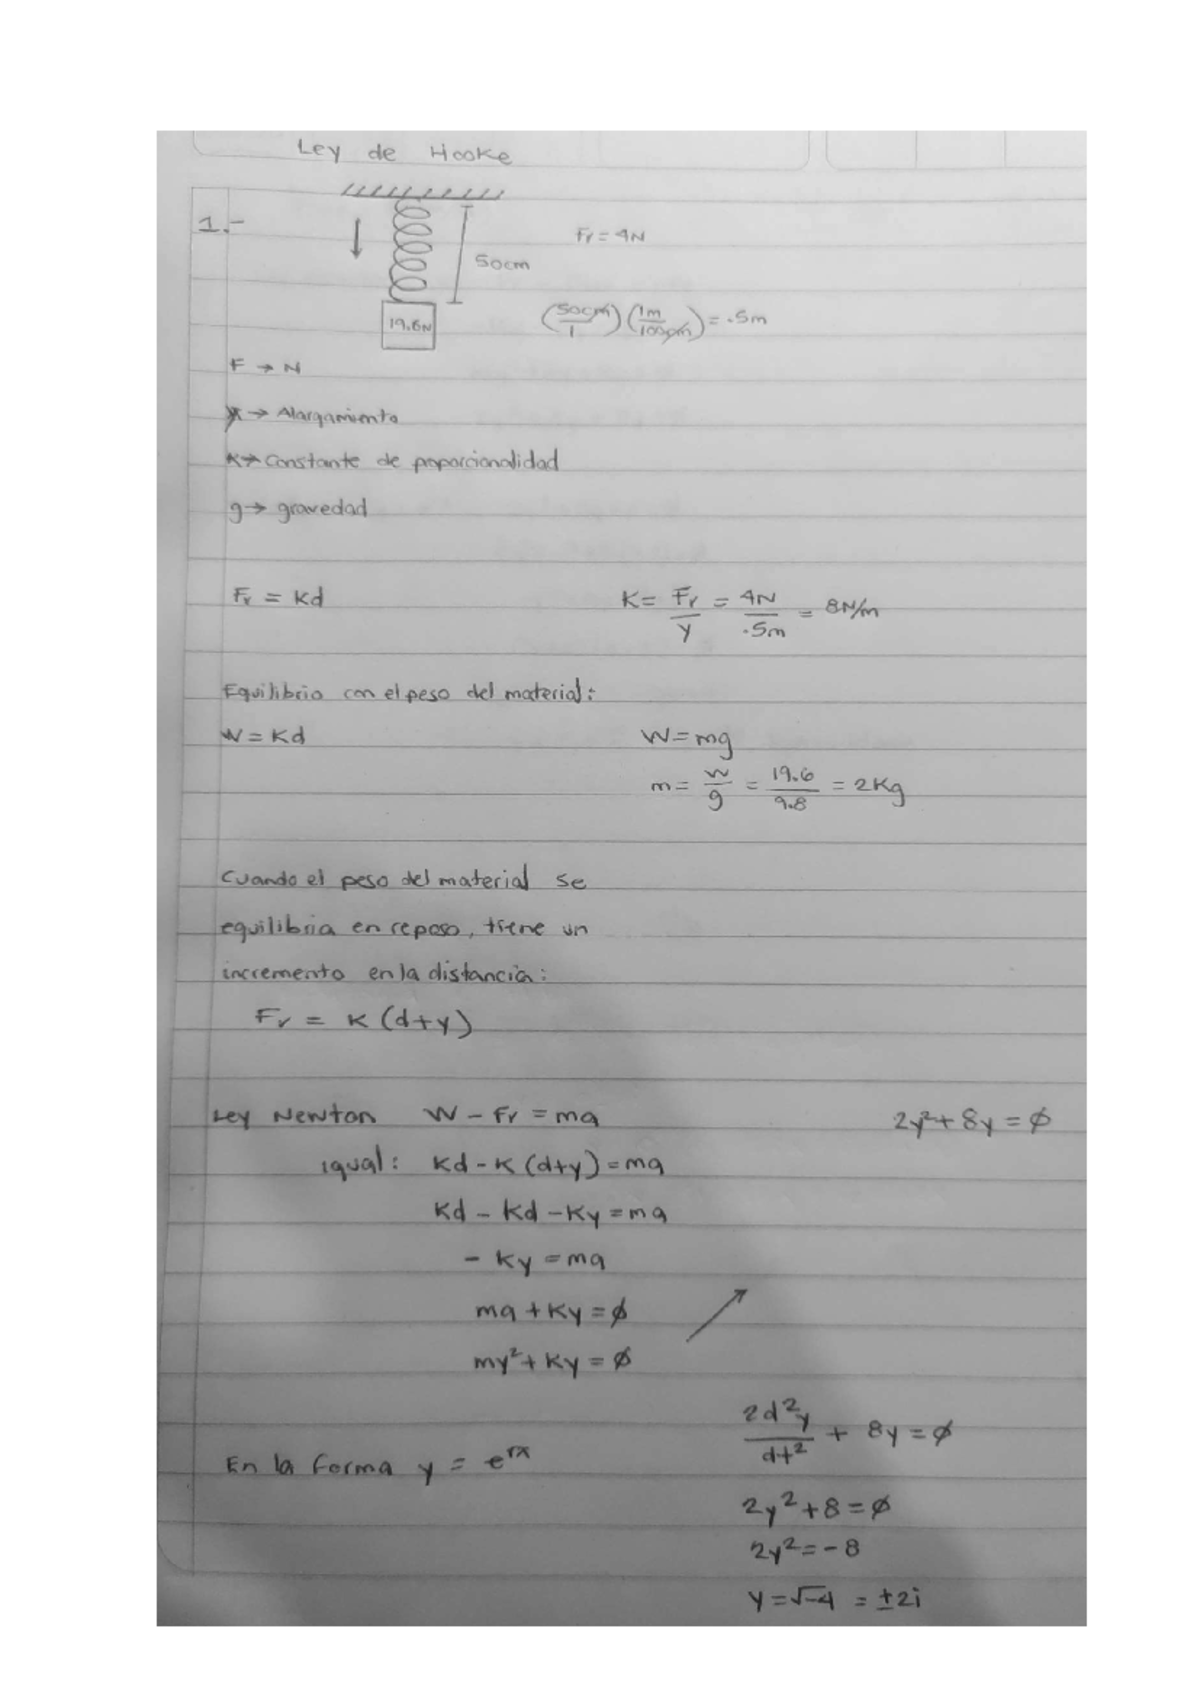 Ley de Hooke
1.-
Fr = 4N
50cm
(50cm/1)(1m/100cm) = .5m
19.6N
F → N
y → Alargamiento
K → Constante de poporcionalidad
g → gravedad
Fr = Kd
K = Fr/y = 4N/.5m = 8N/m
Equilibrio con el peso del material:
W = Kd
W = mg
m = W/g = 19.6/9.8 = 2Kg
Cuando el peso del material se
equilibria en reposo, tiene un
incremento en la distancia:
Fr = K (d+y)
Ley Newton W - Fr = ma
2y²+ 8y = ∅
igual: Kd - K (d+y) = ma
Kd - Kd - Ky = ma
- Ky = ma
ma + Ky = ∅
my² + Ky = ∅
2d²y/dt² + 8y = ∅
En la forma y = e^rx
2y² + 8 = ∅
2y² = - 8
y = √-4 = ±2i